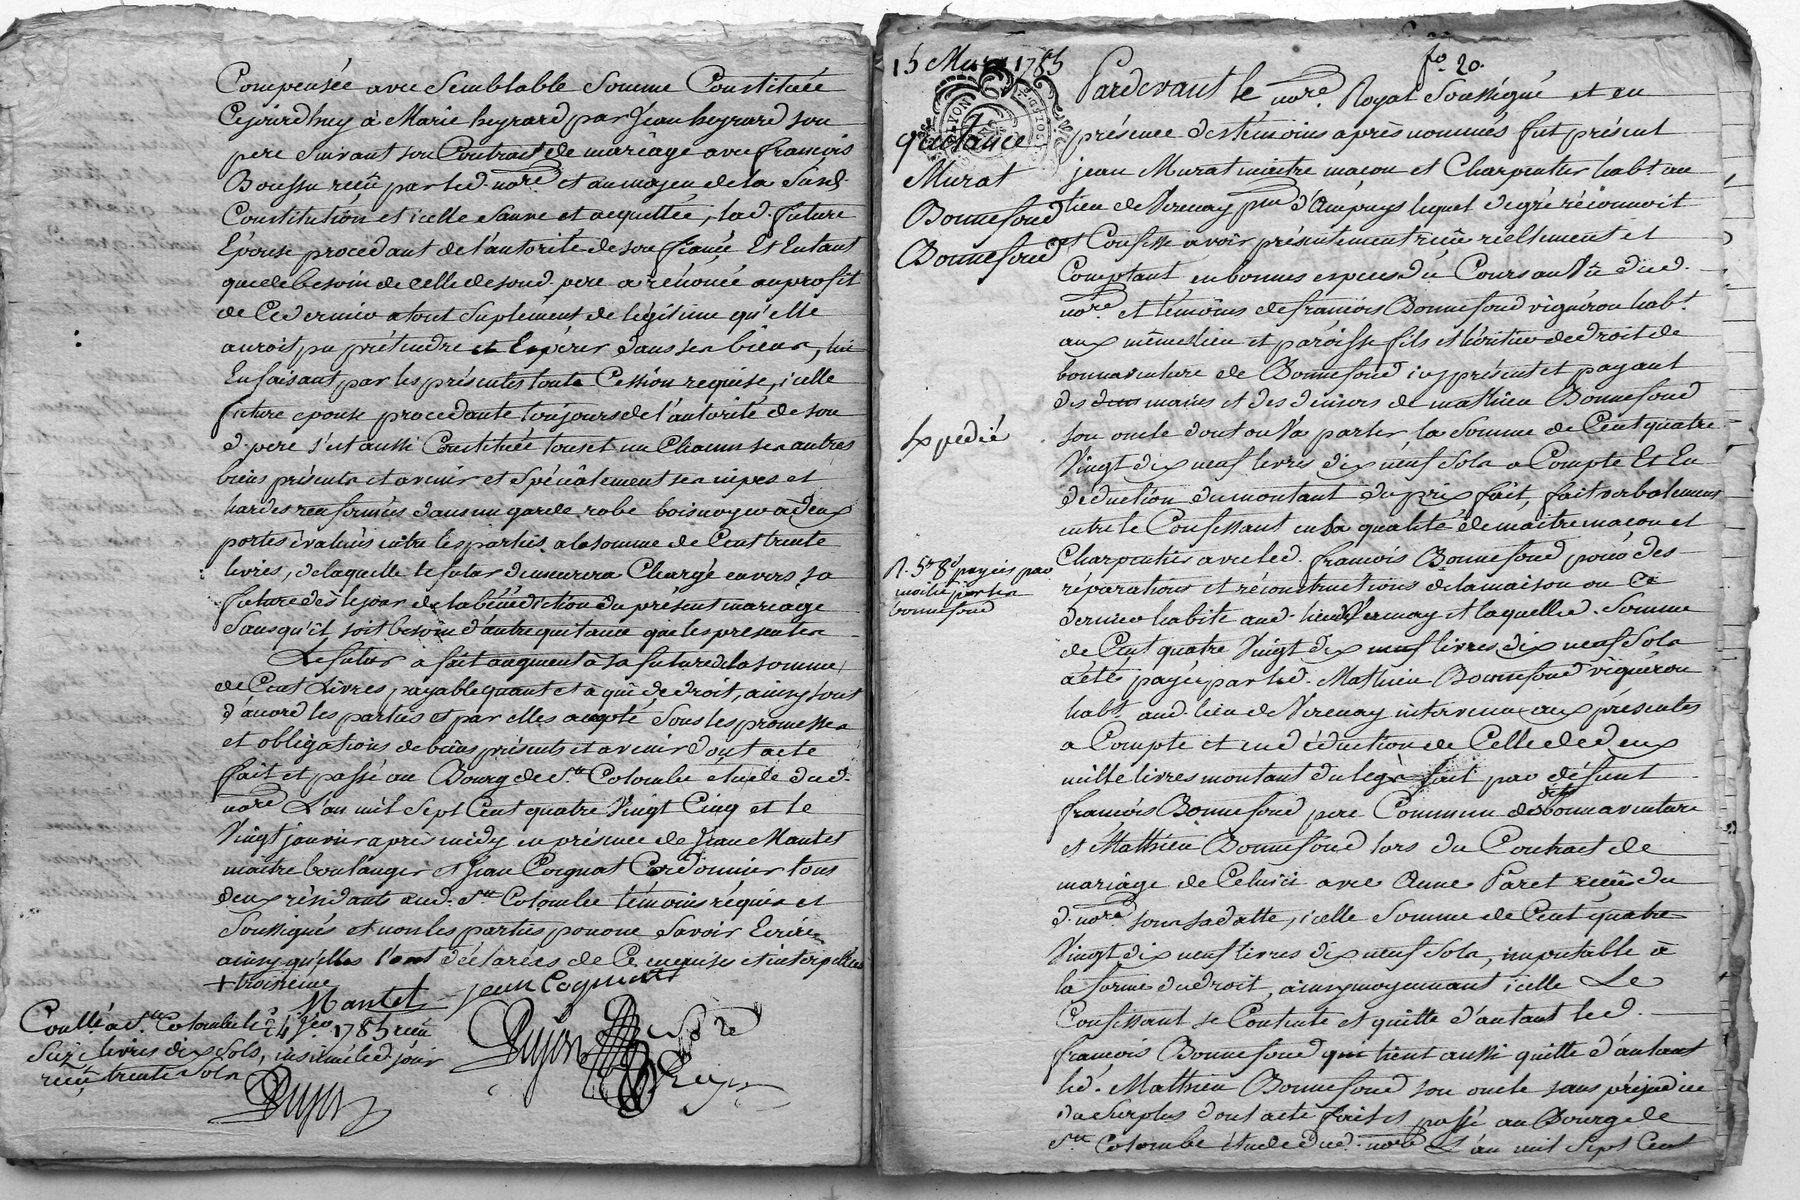 Compensée avec Semblable Somme Constituée
Cejourdhuy à Marie heyrard par Jean heyrard son
pere suivant son Contract de mariage avec françois
Boussu reçû par led. nore. et au moyen de la Susd.
Constitution et icelle Sauve et acquittée, lad. future
Epouse procedant de l'autorité de son fiancé Et Entant
que de besoin de celle de sond. pere a rénoncé au profit
de Ce dernier a tout Suplement de légitime qu'elle
auroit pu prétendre et Espérer dans ses biens, lui
En faisant par les présentes toute Cession requise, icelle
future epouse procedante toujours de l'autorité de son
d. pere s'est aussi Constituée tous et un Chacun ses autres
biens présents et avenir et Spécialement ses nipes et
hardes renfermées dans un garde robe bois noyer à deux
portes évalués entre les parties a la somme de Cent trente
livres, de laquelle le futur demeurera Chargé envers sa
future dès le jour de la bénédiction du présent mariage
Sans qu'il soit besoin d'autre quitance que les presentes
Le futur a fait augment à sa future de la somme
de Cent Livres, payable quant et à qui de droit, ainsy tout
d'acord les parties et par elles accepté Sous les promesses
et obligations de biens présents et avenir dont acte
fait et passé au Bourg de Ste Colombe etude dud.
nore L'an mil Sept Cent quatre Vingt Cinq et le
Vingt janvier après midy en présence de Jean Mantet
maitre boulanger et Jean Coignat Cordonnier tous
deux résidants aud. Ste Colombe témoins réquis et
Soussignés et non les parties pour ne Savoir Ecrire
ainsy qu'elles l'ont déclaré de Ce enquises et interpellées
+ troisieme
Mantet jean Cognat
Dujon
Conllé a Ste Colombe le 24 Jer 1785 reçû
Six livres dix Sols, insinué led. jour
reçû trente Sols
Dujon
15 Mars 1785
fo. 20.
quittance
Murat
Bonnefond
Bonnefond
Expedié
payées par
moitié par les
bonnefond
Pardevant le nore. Royal Soussigné et en
présence des témoins après nommés fut présent
jean Murat maitre maçon et Charpentier habt. au
lieu de Verenay psse d'Ampuys lequel de gré réconnoit
et Confesse avoir présentement reçu réellement et
Comptant en bonnes especes du Cours au Vû dud.
nore et témoins de françois Bonnefond vigneron habt.
aux mêmes lieu et paroisse fils et héritier de droit de
bonnaventure de Bonnefond icy présent et payant
des mains et des deniers de mathieu Bonnefond
son oncle dont on Va parler la Somme de Cent quatre
Vingt dix neuf livres dix neuf Sols a Compte Et En
déduction du montant du prix fait, fait verbalement
entre le Confessant en Sa qualité de maitre maçon et
Charpentier avec led. françois Bonnefond pour des
réparations et réconstructions de la maison ou Ce
dernier habite aud. lieu Verenay et laquelle d. Somme
de Cent quatre Vingt dix neuf livres dix neuf Sols
a été payée par led. Mathieu Bonnefond vigneron
habt. aud. lieu de Verenay intervenu aux présentes
a Compte et en déduction de Celle de deux
mille livres montant du legs fait par défunt
françois Bonnefond pere Commun desdits bonnaventure
et Mathieu Bonnefond lors du Contract de
mariage de Celuici avec Anne Paret reçû du
d. nore. sous sa datte, icelle Somme de Cent quatre
Vingt dix neuf livres dix neuf Sols, imputable à
la forme du droit, ainsy moyennant icelle Le
Confessant se Contente et quitte d'autant led.
françois Bonnefond qui tient aussi quitte d'autant
led. Mathieu Bonnefond son oncle sans préjudice
du Surplus dont acte fait et passé au Bourg de
Ste Colombe étude dud. nore L'an mil Sept Cent